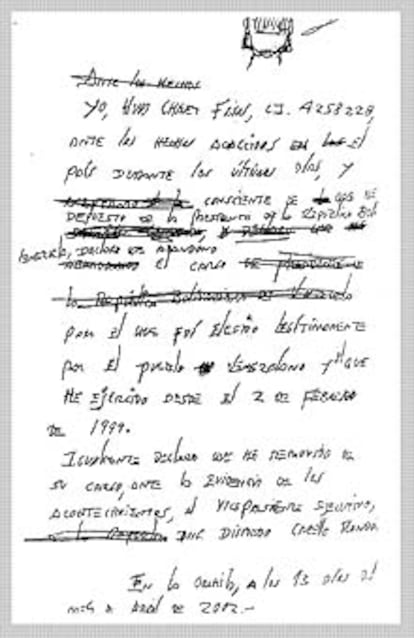 Ante los hechos
Yo, Hugo Chavez Frias, C.I. 4258228,
ante los hechos acaecidos en el
país durante los últimos días, y
consciente de que he
depuesto de la presidencia de la República Bol
declaro que abandono
el cargo
la República Bolivariana de Venezuela
para el que fuí electo legítimamente
por el pueblo venezolano y que
he ejercido desde el 2 de Febrero
de 1999.
Igualmente declaro que he removido de
su cargo, ante la evidencia de los
acontecimientos, al Vicepresidente Ejecutivo,
Ing. Diosdado Cabello Rondón
En la Orchila, a los 13 días del
mes de Abril de 2002.-